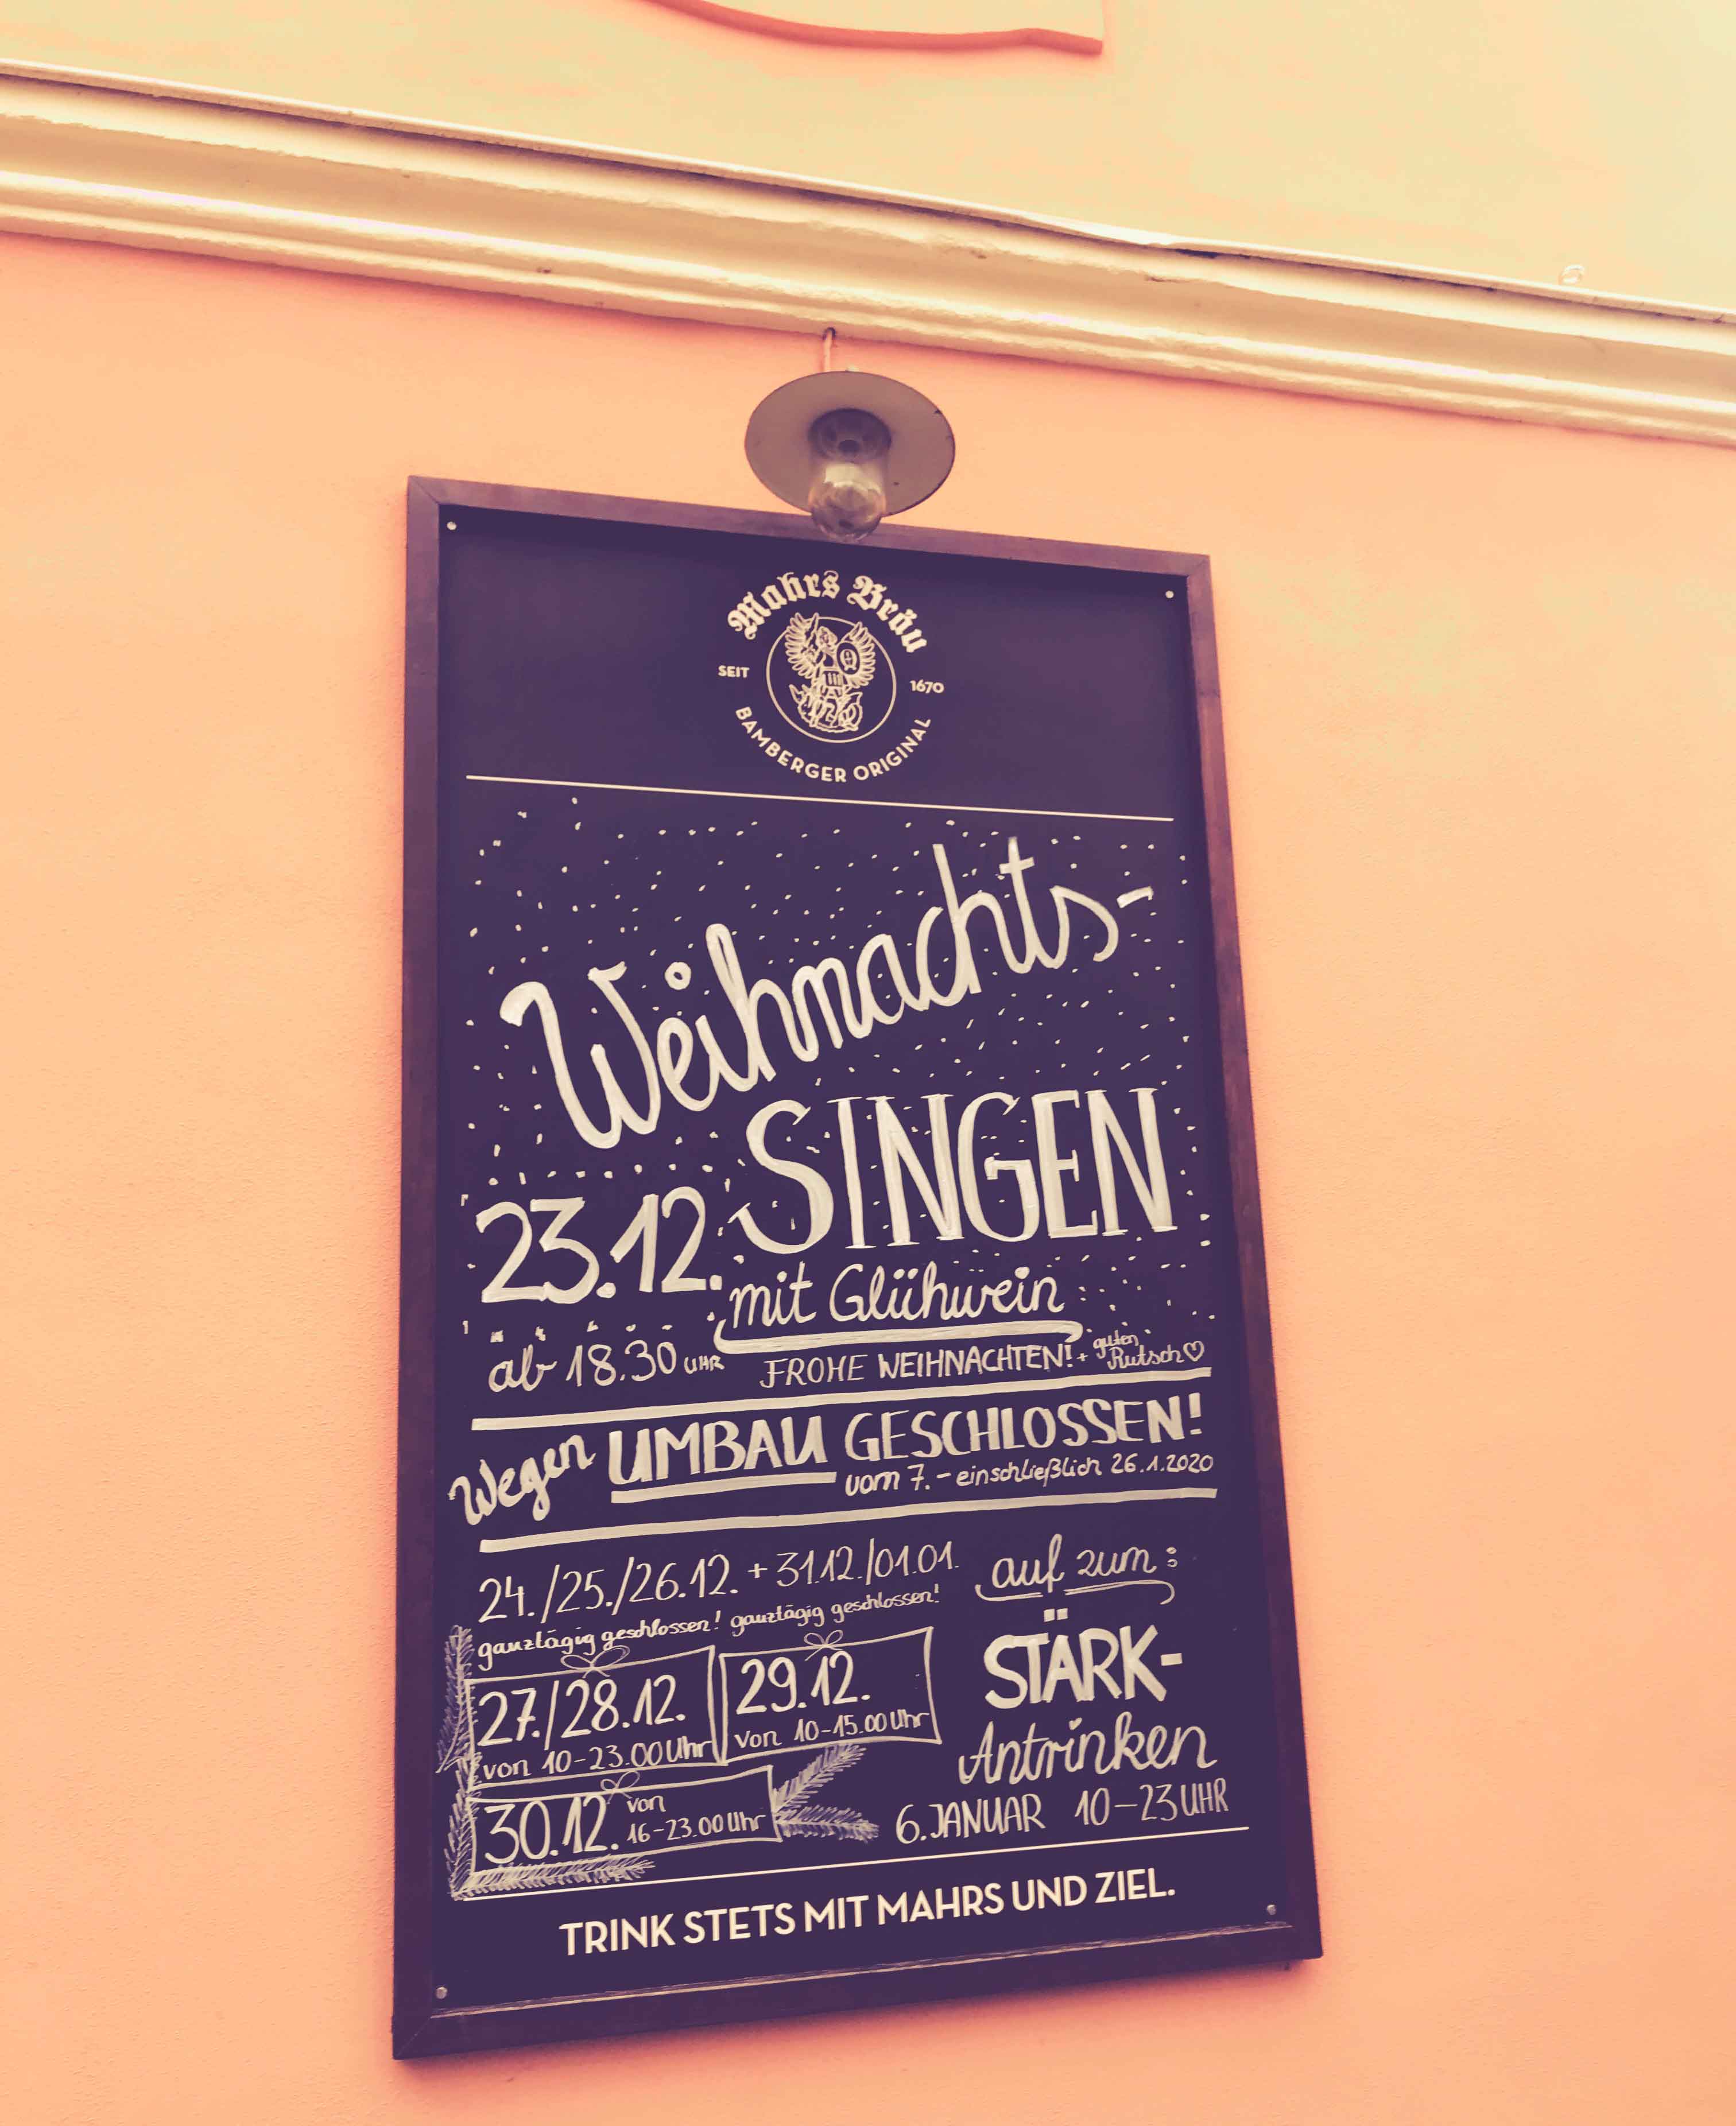 Mahrs Bräu
SEIT 1670
BAMBERGER ORIGINAL
Weihnachts-
SINGEN
23.12.
mit Glühwein
ab 18.30 UHR
FROHE WEIHNACHTEN! + guten Rutsch ♡
Wegen UMBAU GESCHLOSSEN!
vom 7. - einschließlich 26.1.2020
24./25./26.12. + 31.12./01.01.
ganztägig geschlossen! ganztägig geschlossen!
27./28.12.
von 10-23.00 Uhr
29.12.
von 10-15.00 Uhr
30.12. von
16-23.00 Uhr
auf zum:
STÄRK-
Antrinken
6. JANUAR 10-23 UHR
TRINK STETS MIT MAHRS UND ZIEL.